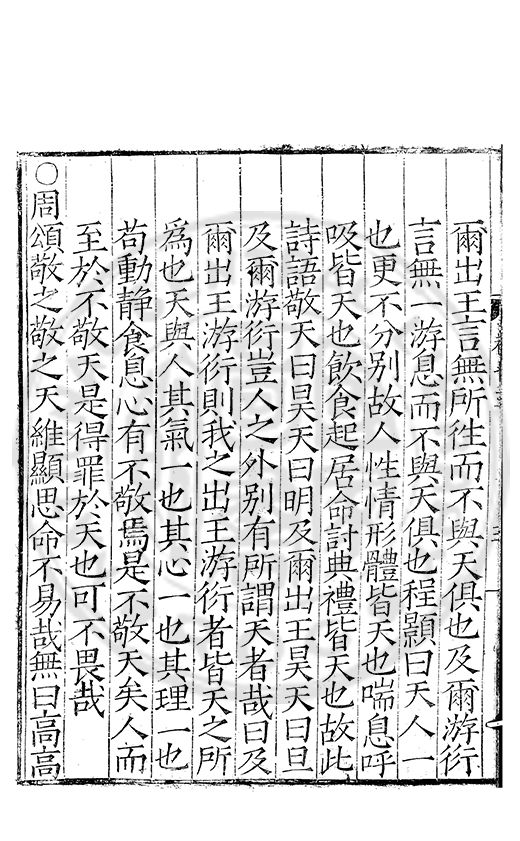 爾出王言無所徃而不與天俱也及爾游衍
言無一游息而不與天俱也程顥曰天人一
也更不分别故人性情形體皆天也喘息呼
吸皆天也飲食起居命討典禮皆天也故此
詩語敬天曰昊天曰明及爾出王昊天曰旦
及爾游衍豈人之外别有所謂天者哉曰及
爾出王游衍則我之出王游衍者皆天之所
爲也天與人其氣一也其心一也其理一也
苟動静食息心有不敬焉是不敬天矣人而
至於不敬天是得罪於天也可不畏哉
○周頌敬之敬之天維顯思命不易哉無曰高高